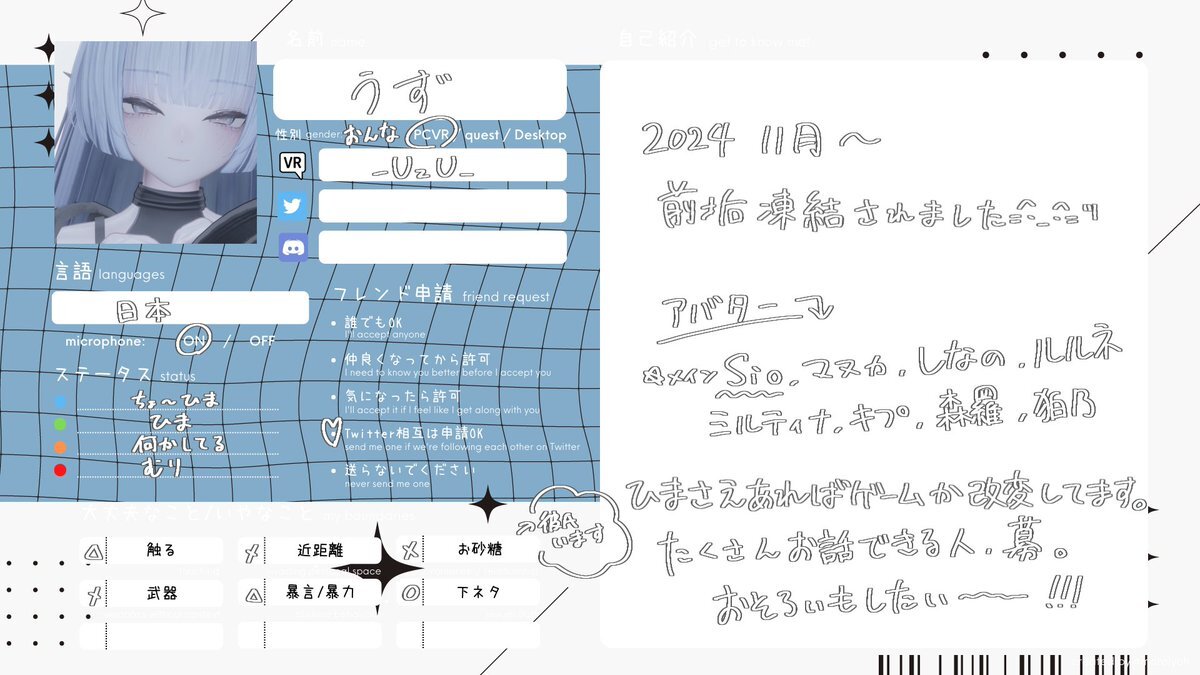 名前 name
うず
性別 gender: おんな PCVR / quest / Desktop
VR
-UzU-
言語 languages
日本
microphone: ON / OFF
ステータス status
ちょ〜ひま
ひま
何かしてる
むり
フレンド申請 friend request
誰でもOK
I'll accept anyone
仲良くなってから許可
I need to know you better before I accept you
気になったら許可
I'll accept it if I feel like I get along with you
Twitter相互は申請OK
send me one if we're following each other on Twitter
送らないでください
never send me one
大丈夫なこと/いやなこと my boundaries
△ 触る
× 近距離
× お砂糖
× 武器
△ 暴言/暴力
○ 下ネタ
→彼氏
います
自己紹介 get to know me!
2024 11月〜
前垢凍結されました
アバター
メインSio.マヌカ.しなの.ルルネ
ミルティナ.キプ.森羅.狛乃
ひまさえあればゲームか改変してます。
たくさんお話できる人.募。
おそろいもしたい〜!!!